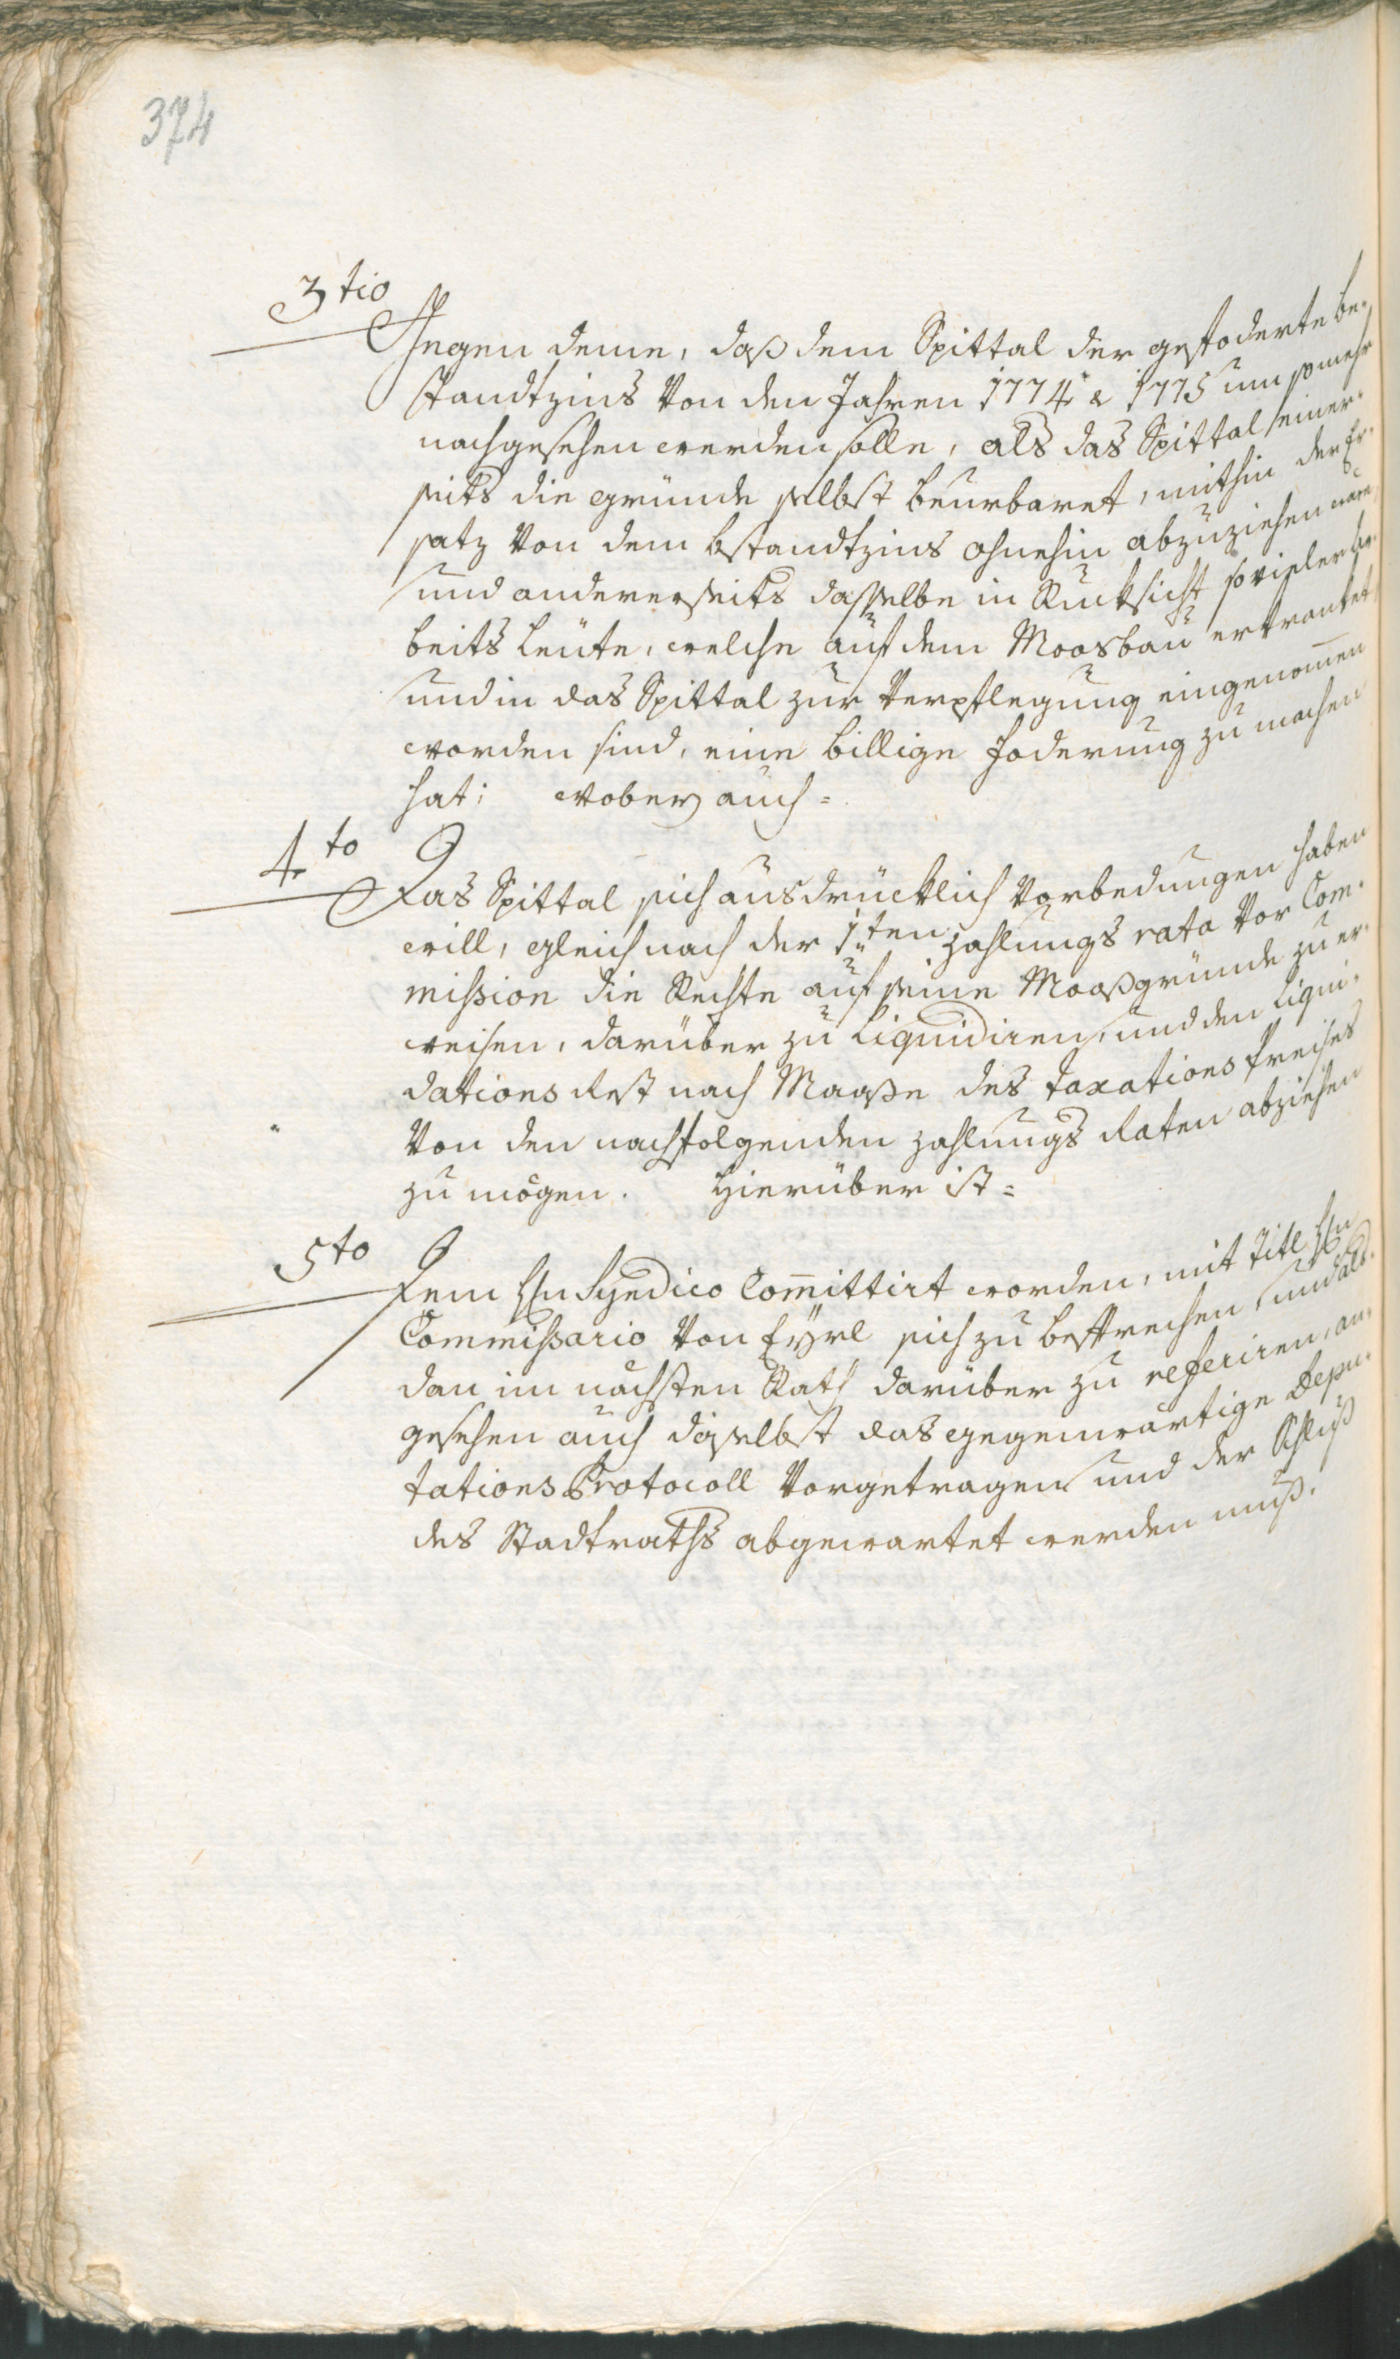 374
3tio
Gegen deme, daß dem Spittal der gefoderte be-
standtzins Von den Jahren 1774 & 1775 um so mehr
nachgesehen werden solle, als das Spittal seiner-
seits die gründe selbst beurbaret, mithin der Er-
satz Von dem bstandtzins ohnehin abzuziehen wäre
und andererseits dasselbe in Rucksicht so vieler Ar-
beits Leüte, welche auf dem Moosbau erkranket
und in das Spittal zur Verpflegung eingenom̄en
worden sind, eine billige foderung zu machen
hat; wobey auch =
4to
Das Spittal sich ausdrücklich Vorbedungen haben
will, gleich nach der 1ten zahlungs rata Vor Com-
mission die Rechte auf seine Mooßgründe zu er-
weisen, darüber zu Liquidiren, und den Liqui-
dations Rest nach Maaße des taxations Preises
Von den nachfolgenden zahlungs Raten abziehen
zu mögen. Hierüber ist =
5to
Dem Hn Syndico Com̄ittirt worden, mit Titl Hn
Commissario Von Eyrl sich zu besprechen, und als-
dan im nächsten Rath darüber zu referiren, an-
gesehen auch daselbst das gegenwärtige Depu-
tations Protocoll Vorgetragen und der Schluß
des Stadtraths abgewartet werden muß.